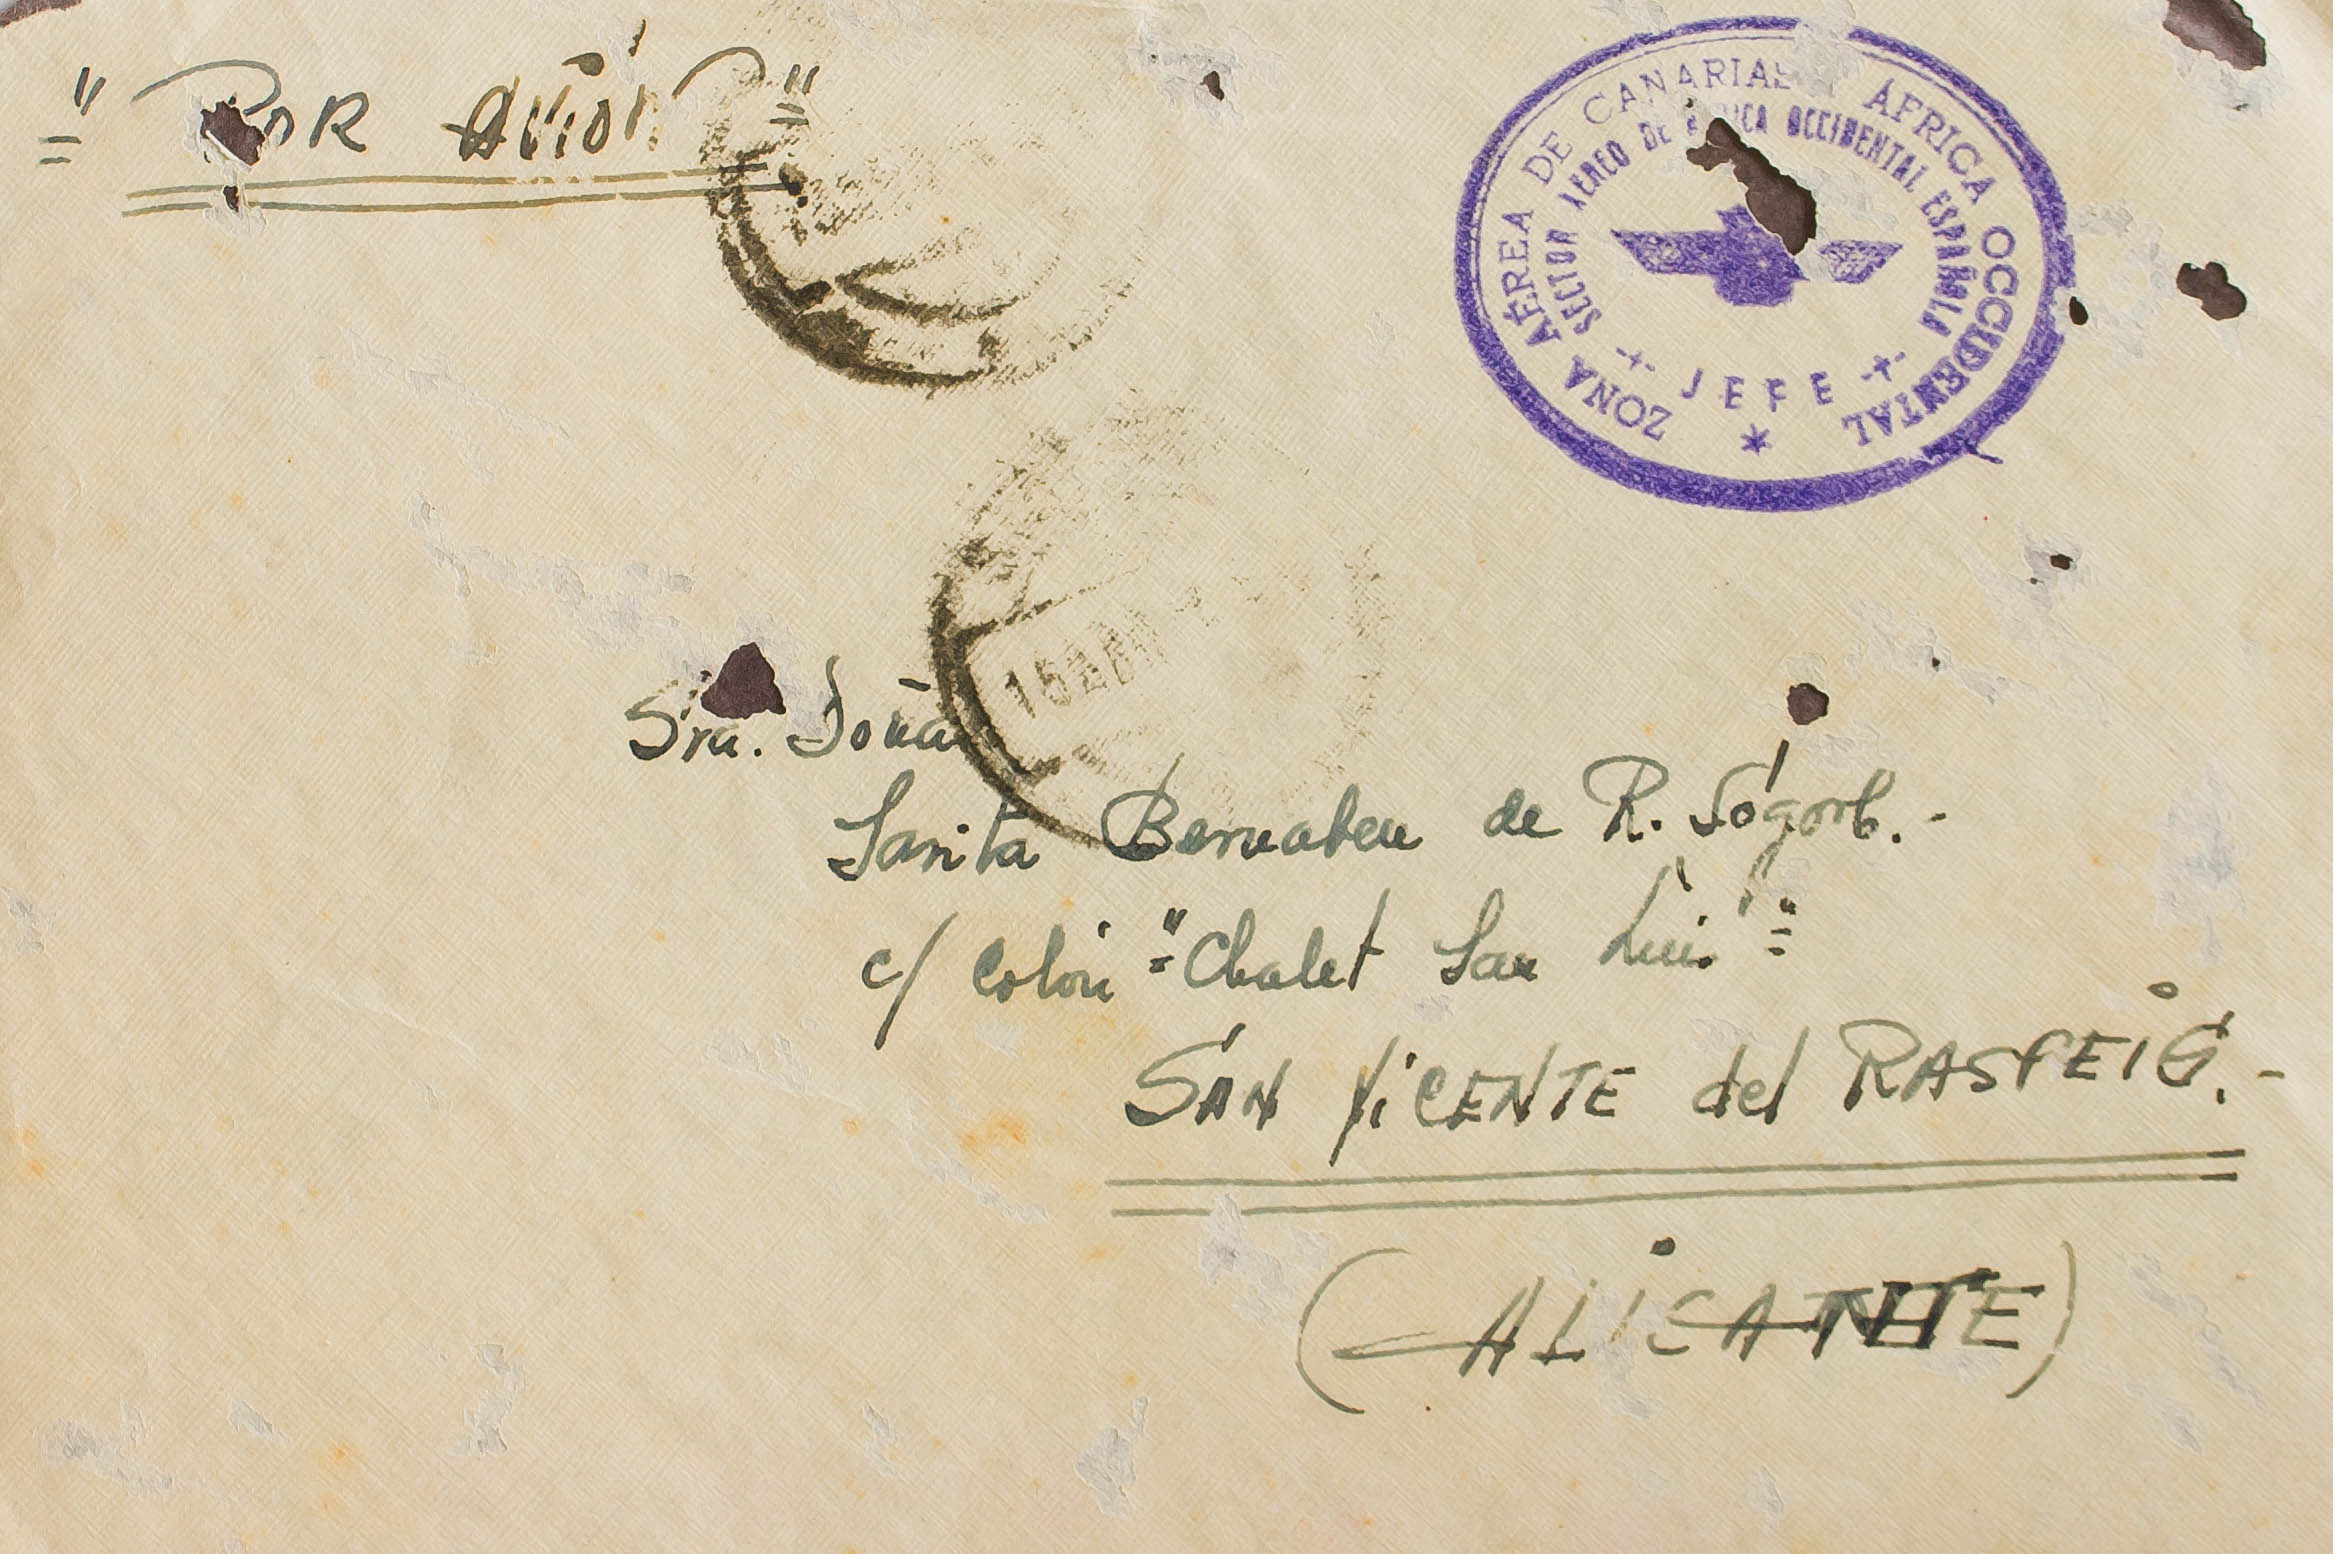 "Por Avión"
ZONA AÉREA DE CANARIAS Y ÁFRICA OCCIDENTAL
SECTOR AEREO DE AFRICA OCCIDENTAL ESPAÑOLA
JEFE
Sra. Doña
Sarita Bernabeu de R. Sógorb.-
c/ Colón "Chalet San Luis"
SAN VICENTE del RASPEIG.-
(ALICANTE)